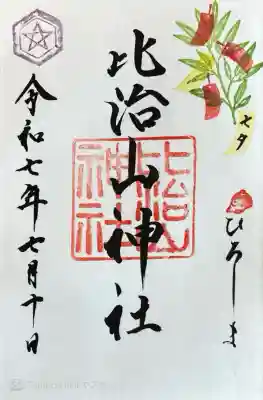 七夕
ひろしま
比治山神社
比治山
神社
令和七年七月十日